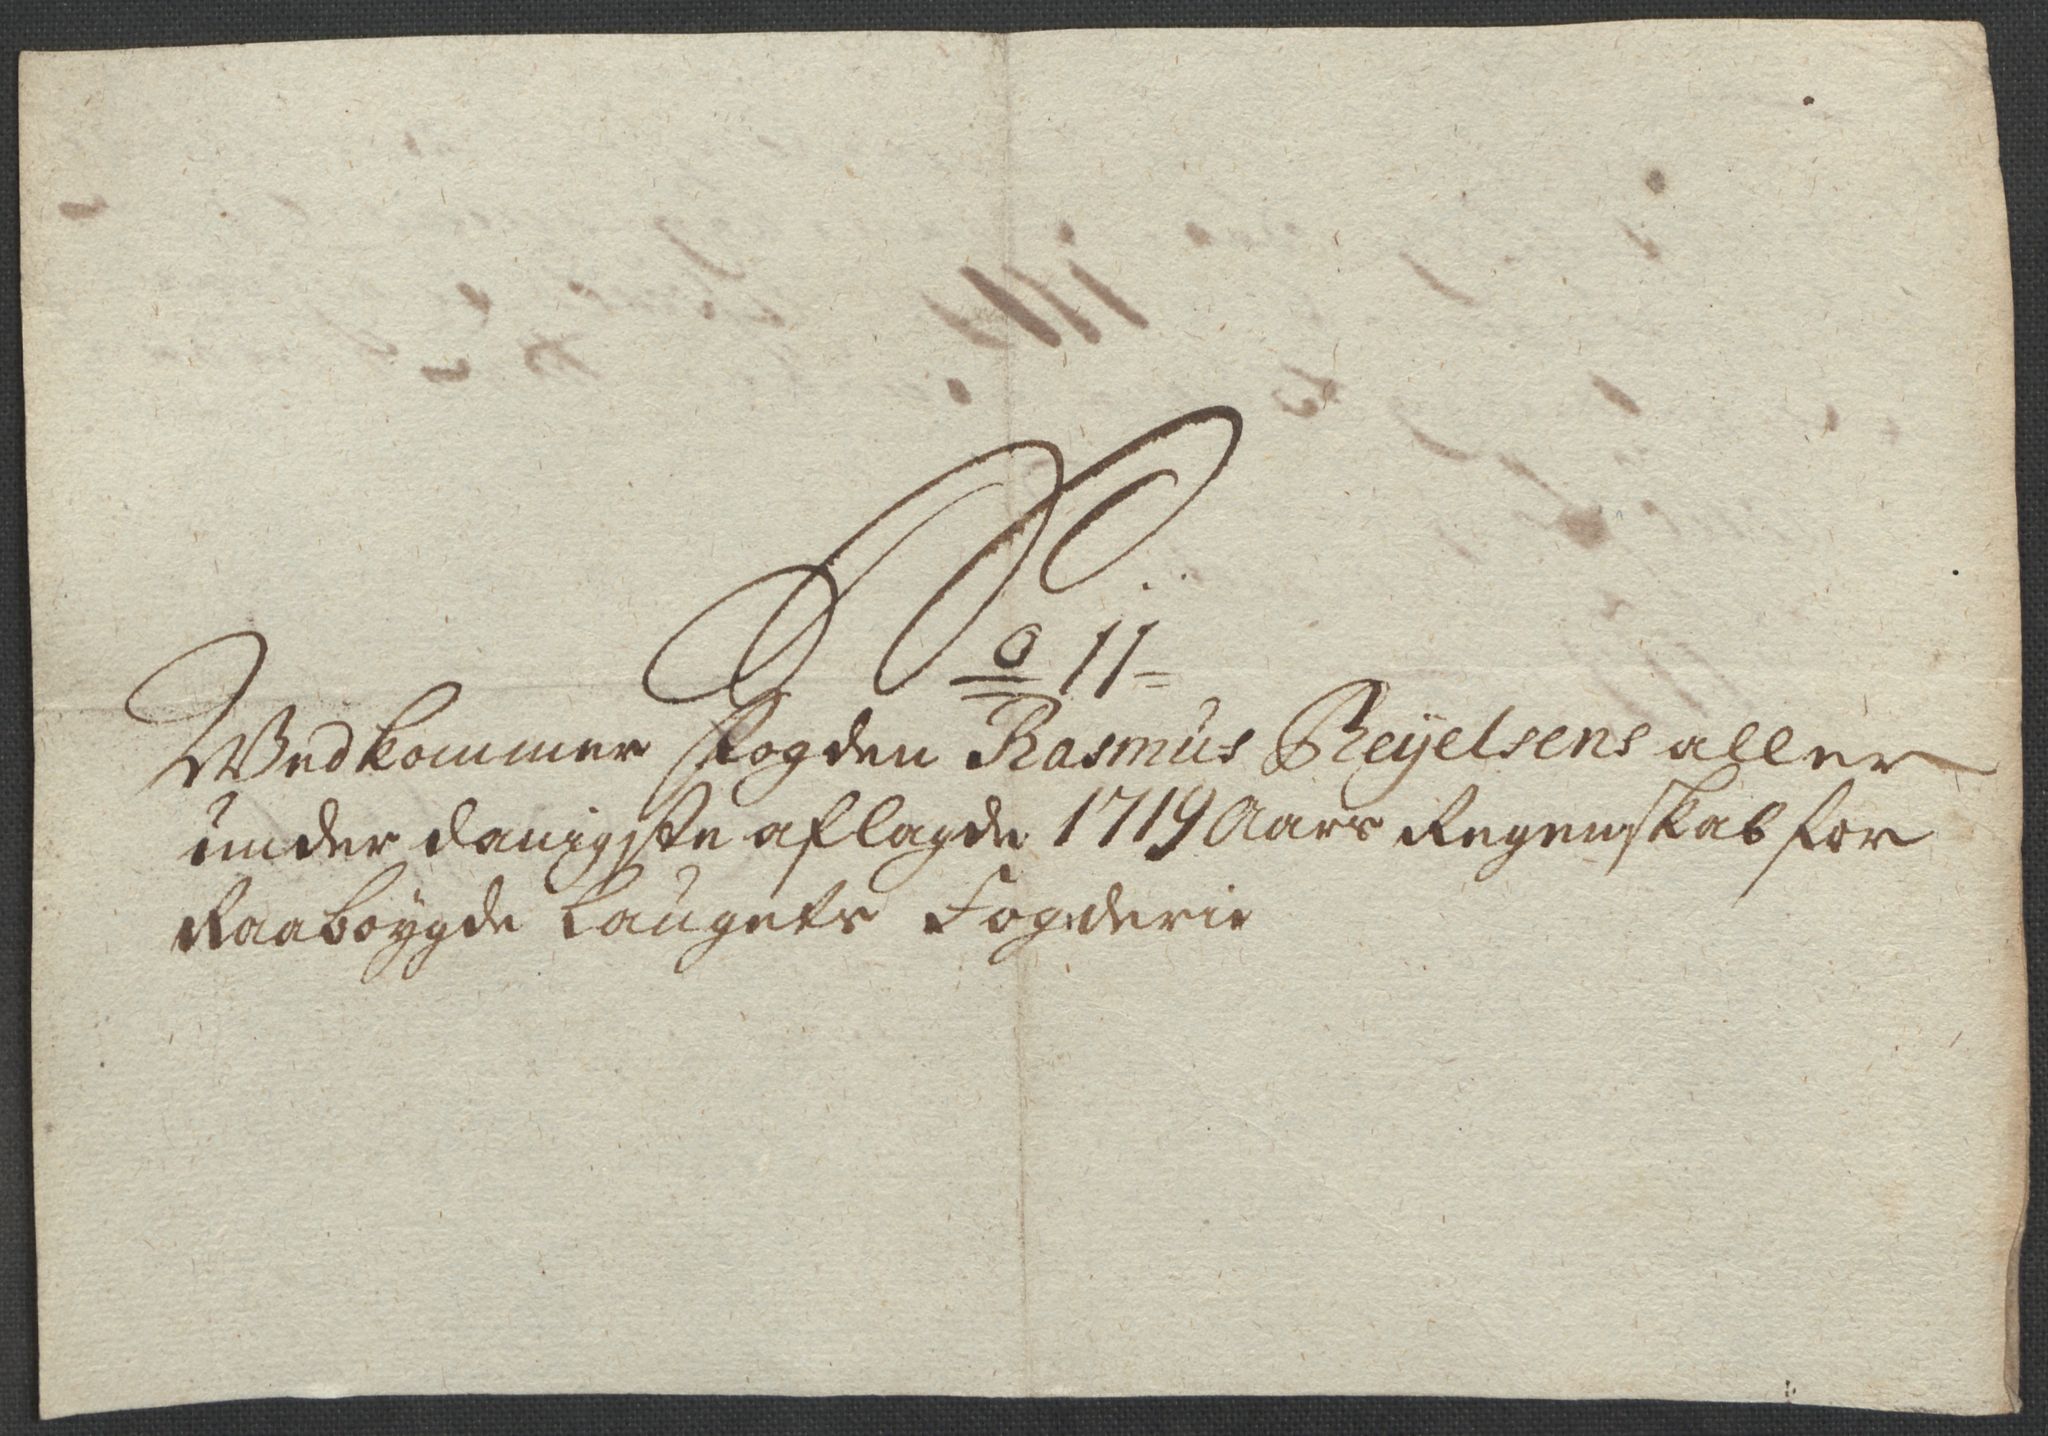 No 11
Vedkommer Fogden Rasmus Reyelsens aller
under danigste aflagde 1719 Aars Regenskab for
Raaboygde Laugets Fogderie